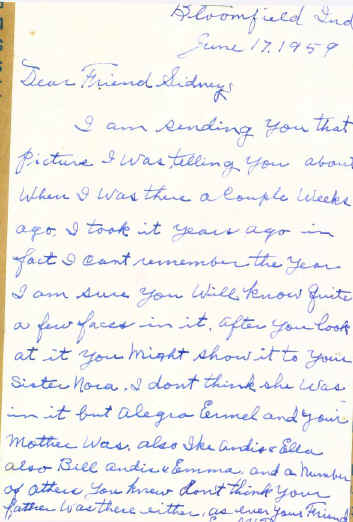 Bloomfield Ind
June 17, 1959
Dear Friend Sidney,
I am sending you that
picture I was telling you about
when I was there a couple weeks
ago. I took it years ago in
fact I cant remember the year
I am sure you will know quite
a few faces in it. after you look
at it you might show it to your
sister Nora. I dont think she was
in it but Alegra Ermel and your
Mother was. also Ike Andis & Ella
also Bill Andis & Emma. and a number
of others you knew dont think your
Father was there either, as ever your Friend